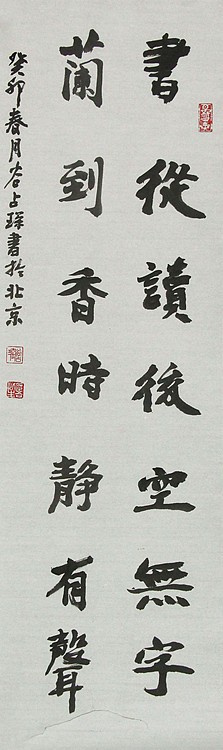 書從讀後空無字
蘭到香時静有聲
癸卯春月谷占琛書於北京